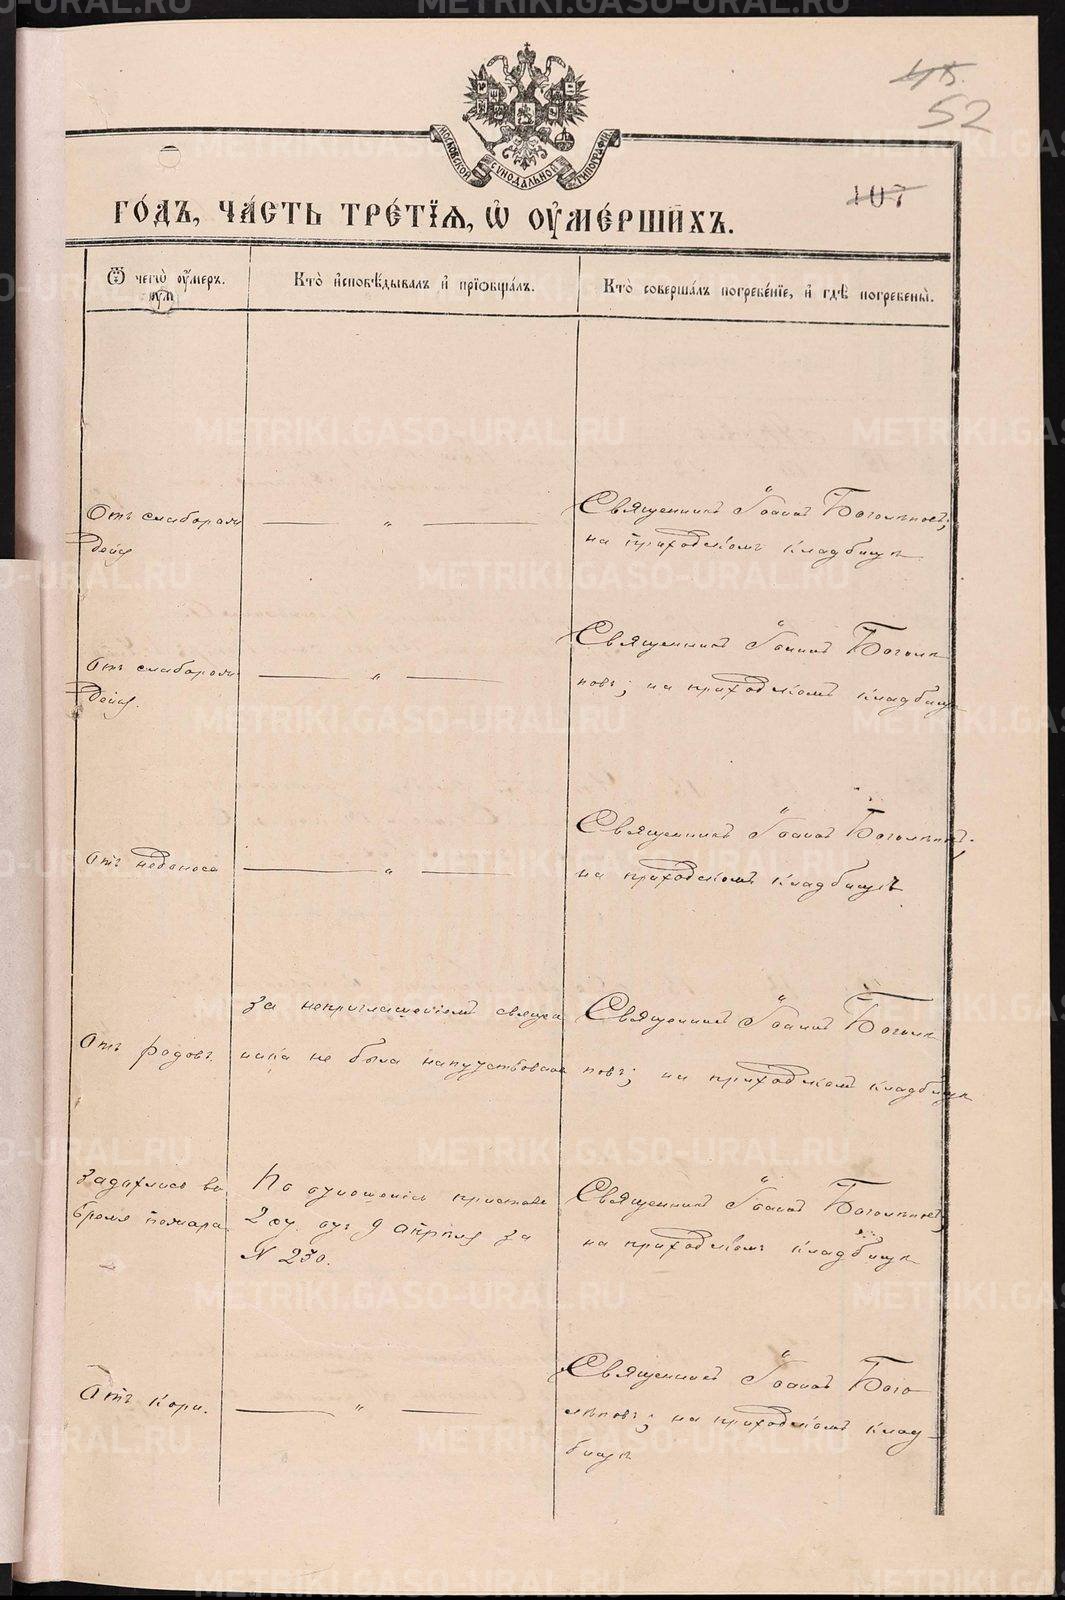 45.
52
107
МОСКОВСКОЙ СѴНОДАЛЬНОЙ ТИПОГРАФІИ
ГО́ДЪ, ЧА́СТЬ ТРЕ́ТІѦ, Ѡ҆ ОУ҆МЕ́РШИХЪ.
Ѿ чегѡ̀ оу҆́меръ.
Кто̀ и҆сповѣ́дывалъ и҆ прїѡбща́лъ.
Кто̀ соверша́лъ погребе́нїе, и҆ гдѣ̀ погребены̀.
Отъ слаборож
денія
— " —
Священникъ Іоаннъ Боголѣповъ;
на приходскомъ кладбищѣ
Отъ слаборож
денія.
— " —
Священникъ Іоаннъ Боголѣ
повъ; на приходскомъ кладбищѣ
Отъ недоноса
— " —
Священникъ Іоаннъ Боголѣповъ;
на приходскомъ кладбищѣ
Отъ родовъ.
За неприглашеніемъ священ
ника не была напутствована
Священникъ Іоаннъ Боголѣ
повъ; на приходскомъ кладбищѣ
Задохлись во
время пожара
По отношенію пристава
2 уч. отъ 9 Апрѣля за
№ 230.
Священникъ Іоаннъ Боголѣповъ;
на приходскомъ кладбищѣ
Отъ кори.
— " —
Священникъ Іоаннъ Бого
лѣповъ; на приходскомъ клад
бищѣ
METRIKI.GASO-URAL.RU